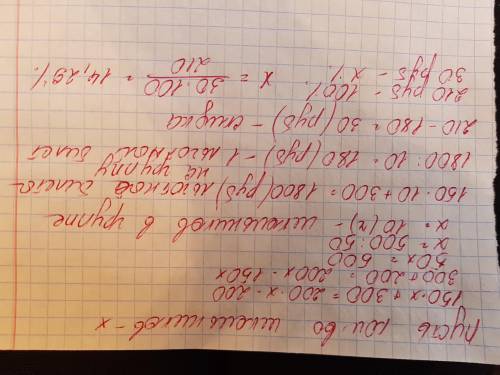 Пусть кол-во школьников - x
150·x+300=200·x-200
300+200=200x-150x
50x=500
x=500:50
x=10(ч)- школьников в группе
150·10+300=1800(руб) льготное билета
на группу
1800:10=180(руб)-1 льготный билет
210-180=30(руб)-скидка
210 руб - 100%
30 руб - x%. x = 30·100/210 = 14,29%